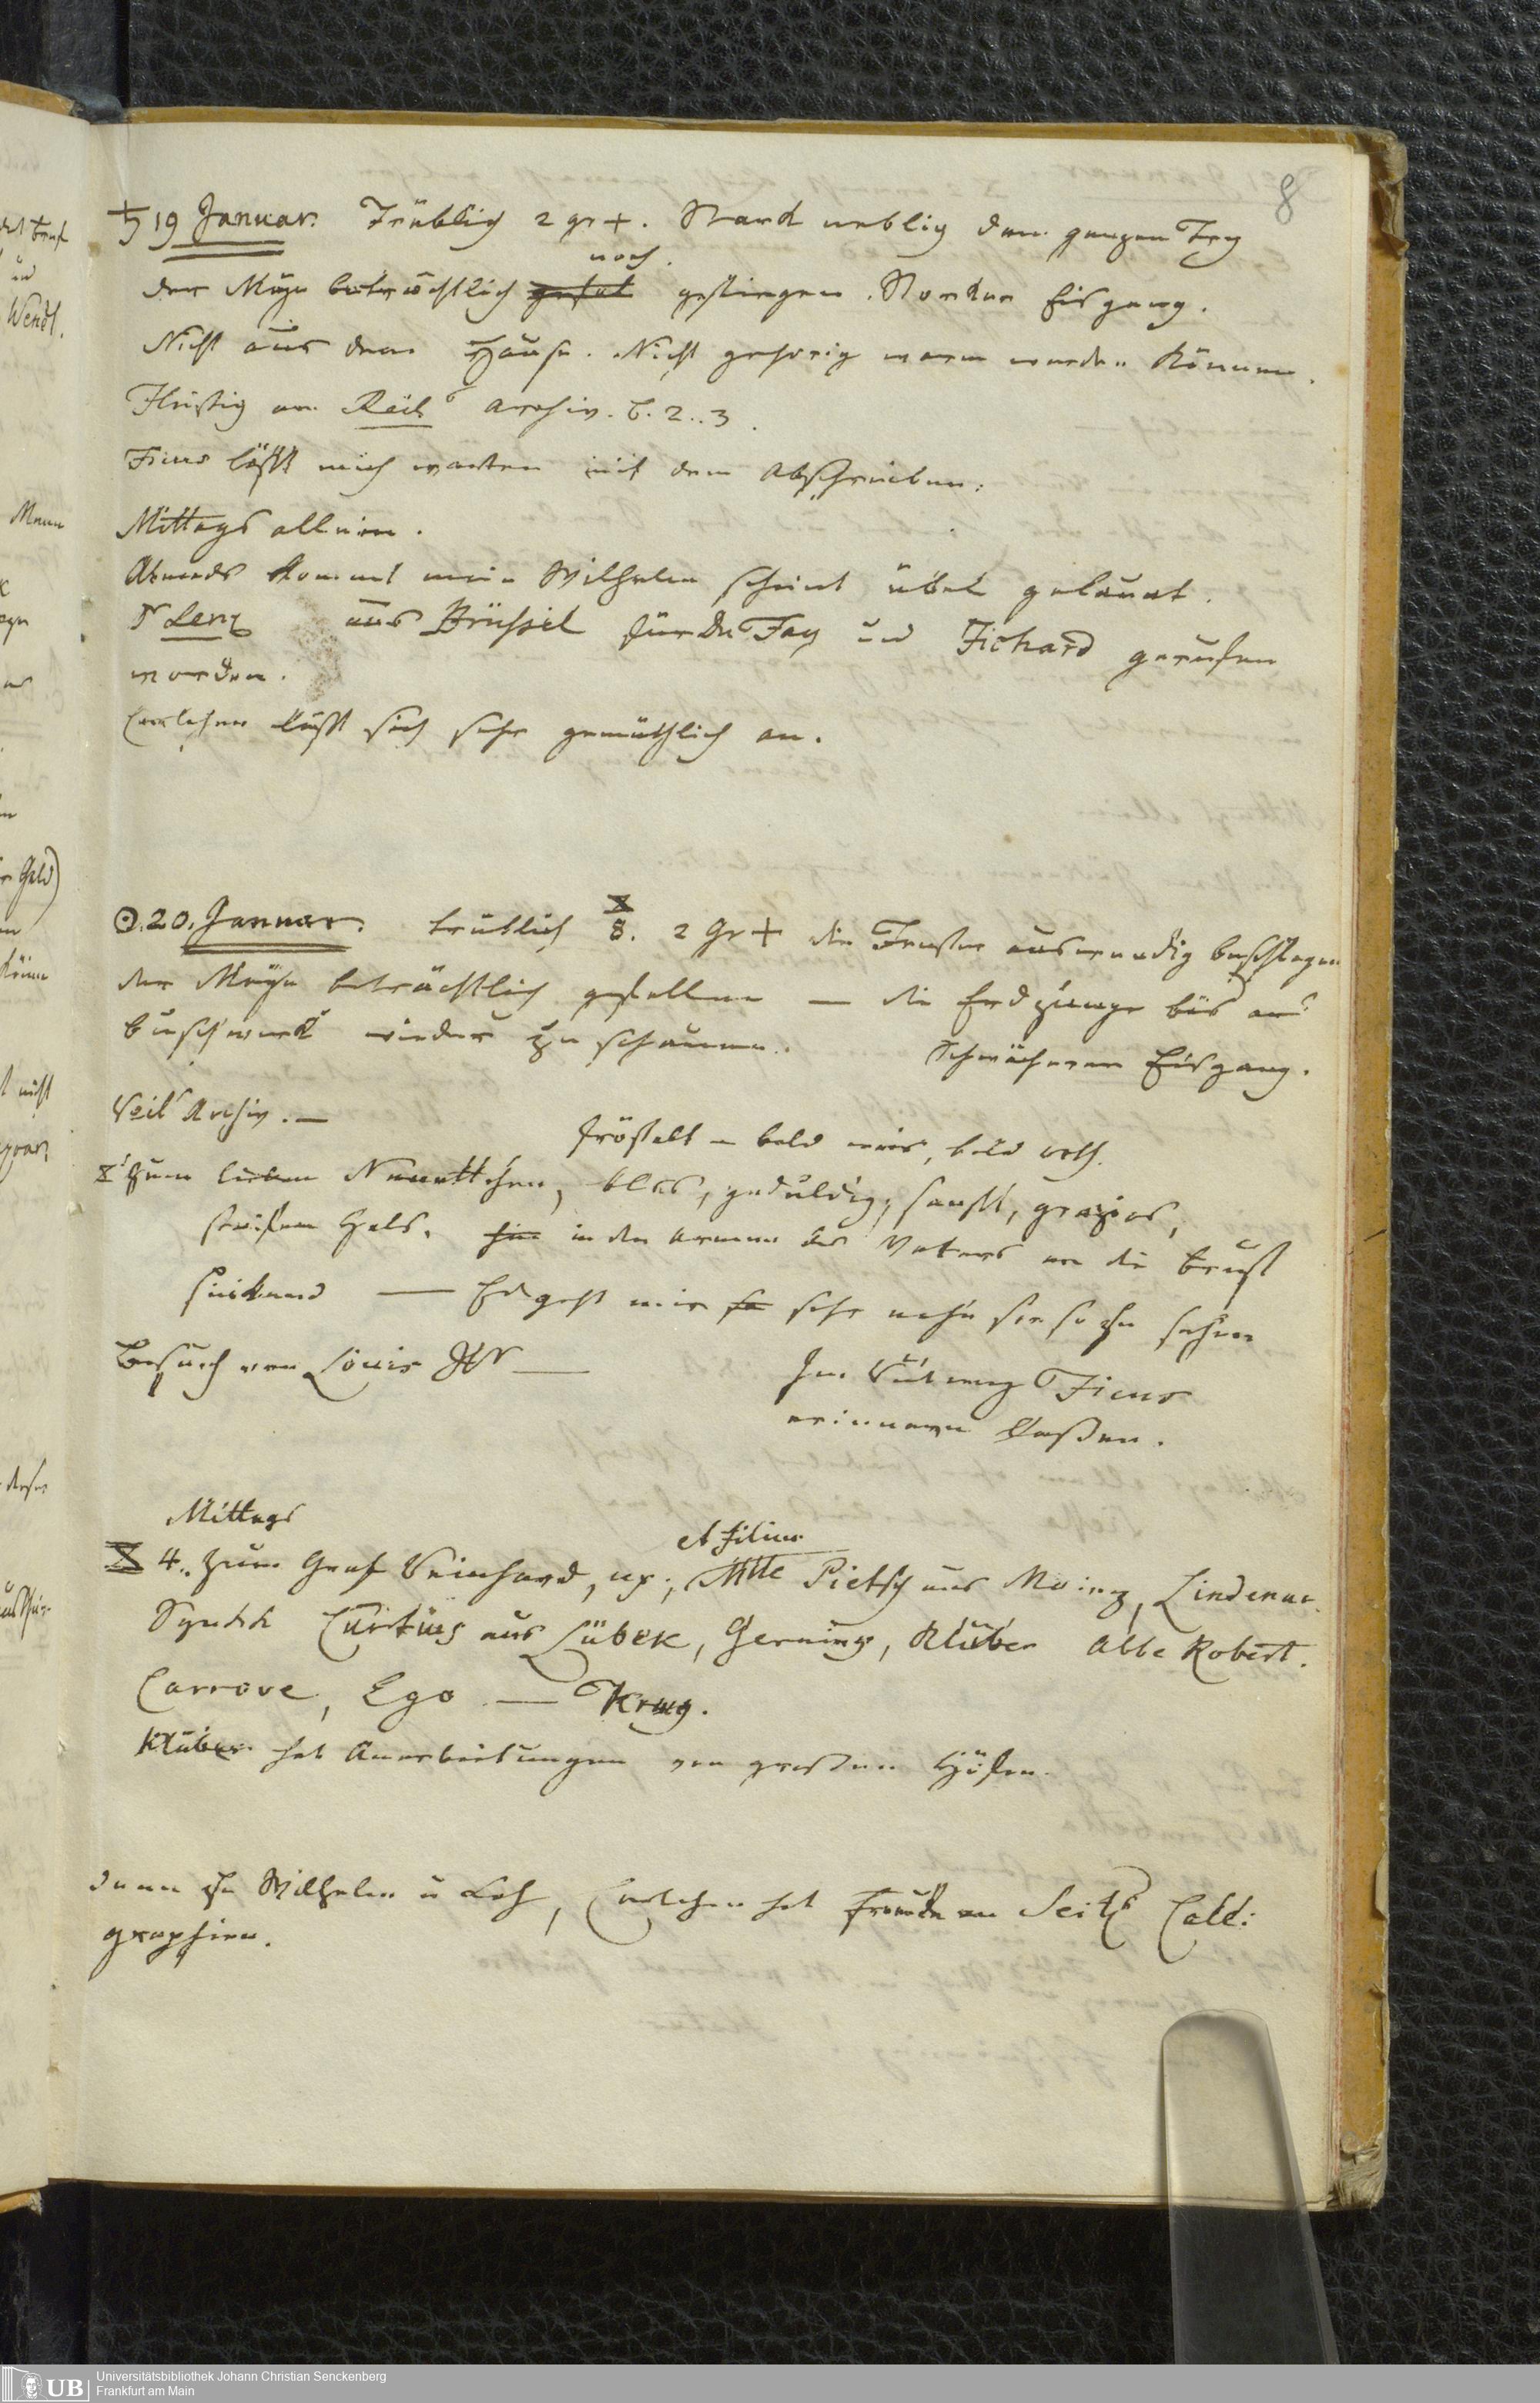 8
♄ 19 Januar. Trüblich 2 gr +. Stark neblig den ganzen Tag
noch
der Mayn beträchtlich gefal gestiegen. Starker Eisgang.
Nicht aus dem Hause. Nicht gehörig warm werden können.
Fleissig an Reils Archiv. B. 2..3.
Ficus lässt mich warten mit dem Abschreiben.
Mittags allein.
Abends kommt mein Wilhelm scheint übel gelaunt.
Dr Lenz aus Brüssel für Du Fay und Fichard gerufen
worden.
Carlchen lässt sich sehr gemüthlich an.
☉. 20. Januar. trüblich 8. 2 Gr + die Fenster auswendig beschlagen
der Mayn beträchtlich gefallen — die Erdzunge bis ans
Buschwerk wieder zu schauen. Schwächerer Eisgang.
Reils Archiv. —
fröstelt – bald weis, bald roth.
zum lieben Nannettchen, blas, geduldig, sanft, grazios,
steifen Hals. in den Armen des Vaters an die Brust
sinkend — Es geht mir sehr nahe sie so zu sehen
Besuch von Louis —
Im Rückweg Ficus
erinnern lassen.
Mittags
et filius
4. zum Graf Reinhard, ux., Mlle Pietsch aus Mainz, Lindenau
Syndik Curtius aus Lübek, Gerning, Klüber Abbe Robert.
Carrove, Ego — Krug.
Klüber hat Anerbietungen von grossen Höfen.
dann zu Wilhelm u Loh, Carlchen hat Freude an Seitz Calli:
graphien.
Universitätsbibliothek Johann Christian Senckenberg
Frankfurt am Main
UB